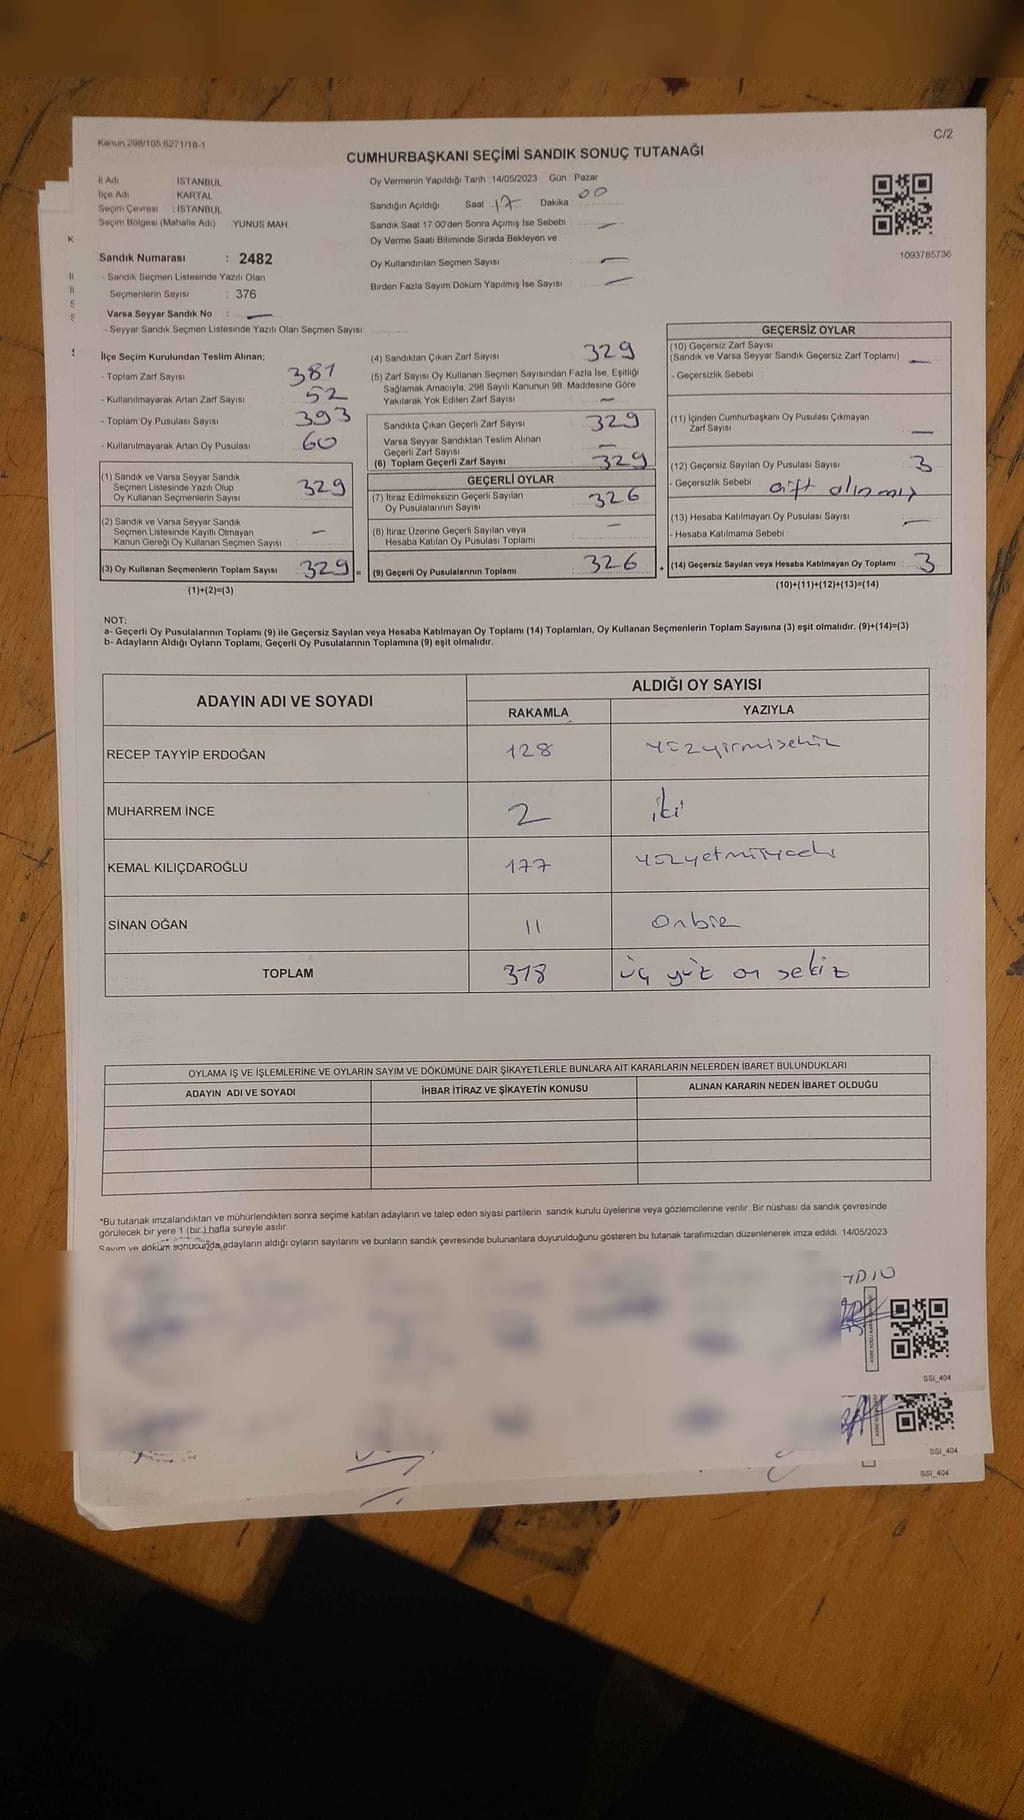 Kanun 298/105,6271/18-1
C/2
CUMHURBAŞKANI SEÇİMİ SANDIK SONUÇ TUTANAĞI
İl Adı : İSTANBUL
İlçe Adı : KARTAL
Seçim Çevresi : İSTANBUL
Seçim Bölgesi (Mahalle Adı) YUNUS MAH.
Sandık Numarası : 2482
- Sandık Seçmen Listesinde Yazılı Olan
Seçmenlerin Sayısı : 376
Varsa Seyyar Sandık No : —
- Seyyar Sandık Seçmen Listesinde Yazılı Olan Seçmen Sayısı
Oy Vermenin Yapıldığı Tarih :14/05/2023 Gün : Pazar
Sandığın Açıldığı Saat 17 Dakika : 00
Sandık Saat 17.00'den Sonra Açımış İse Sebebi : —
Oy Verme Saati Bitiminde Sırada Bekleyen ve
Oy Kullandırılan Seçmen Sayısı : —
Birden Fazla Sayım Döküm Yapılmış İse Sayısı : —
1093785736
İlçe Seçim Kurulundan Teslim Alınan;
- Toplam Zarf Sayısı 381
- Kullanılmayarak Artan Zarf Sayısı 52
- Toplam Oy Pusulası Sayısı 393
- Kullanılmayarak Artan Oy Pusulası 60
(1) Sandık ve Varsa Seyyar Sandık
Seçmen Listesinde Yazılı Olup
Oy Kullanan Seçmenlerin Sayısı 329
(2) Sandık ve Varsa Seyyar Sandık
Seçmen Listesinde Kayıtlı Olmayan
Kanun Gereği Oy Kullanan Seçmen Sayısı —
(3) Oy Kullanan Seçmenlerin Toplam Sayısı 329 =
(1)+(2)=(3)
(4) Sandıktan Çıkan Zarf Sayısı 329
(5) Zarf Sayısı Oy Kullanan Seçmen Sayısından Fazla İse, Eşitliği
Sağlamak Amacıyla, 298 Sayılı Kanunun 98. Maddesine Göre
Yakılarak Yok Edilen Zarf Sayısı —
Sandıkta Çıkan Geçerli Zarf Sayısı 329
Varsa Seyyar Sandıktan Teslim Alınan
Geçerli Zarf Sayısı —
(6) Toplam Geçerli Zarf Sayısı 329
GEÇERLİ OYLAR
(7) İtiraz Edilmeksizin Geçerli Sayılan
Oy Pusulalarının Sayısı 326
(8) İtiraz Üzerine Geçerli Sayılan veya
Hesaba Katılan Oy Pusulası Toplamı —
(9) Geçerli Oy Pusulalarının Toplamı 326 +
GEÇERSİZ OYLAR
(10) Geçersiz Zarf Sayısı
(Sandık ve Varsa Seyyar Sandık Geçersiz Zarf Toplamı) —
- Geçersizlik Sebebi :
(11) İçinden Cumhurbaşkanı Oy Pusulası Çıkmayan
Zarf Sayısı —
(12) Geçersiz Sayılan Oy Pusulası Sayısı 3
- Geçersizlik Sebebi : çift
(13) Hesaba Katılmayan Oy Pusulası Sayısı —
- Hesaba Katılmama Sebebi :
(14) Geçersiz Sayılan veya Hesaba Katılmayan Oy Toplamı 3
(10)+(11)+(12)+(13)=(14)
NOT:
a- Geçerli Oy Pusulalarının Toplamı (9) ile Geçersiz Sayılan veya Hesaba Katılmayan Oy Toplamı (14) Toplamları, Oy Kullanan Seçmenlerin Toplam Sayısına (3) eşit olmalıdır. (9)+(14)=(3)
b- Adayların Aldığı Oyların Toplamı, Geçerli Oy Pusulalarının Toplamına (9) eşit olmalıdır.
ADAYIN ADI VE SOYADI ALDIĞI OY SAYISI
RAKAMLA YAZIYLA
RECEP TAYYİP ERDOĞAN 128 yüzyirmisekiz
MUHARREM İNCE 2 iki
KEMAL KILIÇDAROĞLU 177 yüzyetmişyedi
SİNAN OĞAN 11 Onbir
TOPLAM 318 üç yüz on sekiz
OYLAMA İŞ VE İŞLEMLERİNE VE OYLARIN SAYIM VE DÖKÜMÜNE DAİR ŞİKAYETLERLE BUNLARA AİT KARARLARIN NELERDEN İBARET BULUNDUKLARI
ADAYIN ADI VE SOYADI İHBAR İTİRAZ VE ŞİKAYETİN KONUSU ALINAN KARARIN NEDEN İBARET OLDUĞU
*Bu tutanak imzalandıktan ve mühürlendikten sonra seçime katılan adayların ve talep eden siyasi partilerin sandık kurulu üyelerine veya gözlemcilerine verilir. Bir nüshası da sandık çevresinde
görülecek bir yere 1 (bir ) hafta süreyle asılır.
Sayım ve döküm sonucunda, adayların aldığı oyların sayılarını ve bunların sandık çevresinde bulunanlara duyurulduğunu gösteren bu tutanak tarafımızdan düzenlenerek imza edildi. 14/05/2023
SSI_404
SSI_404
SSI_404